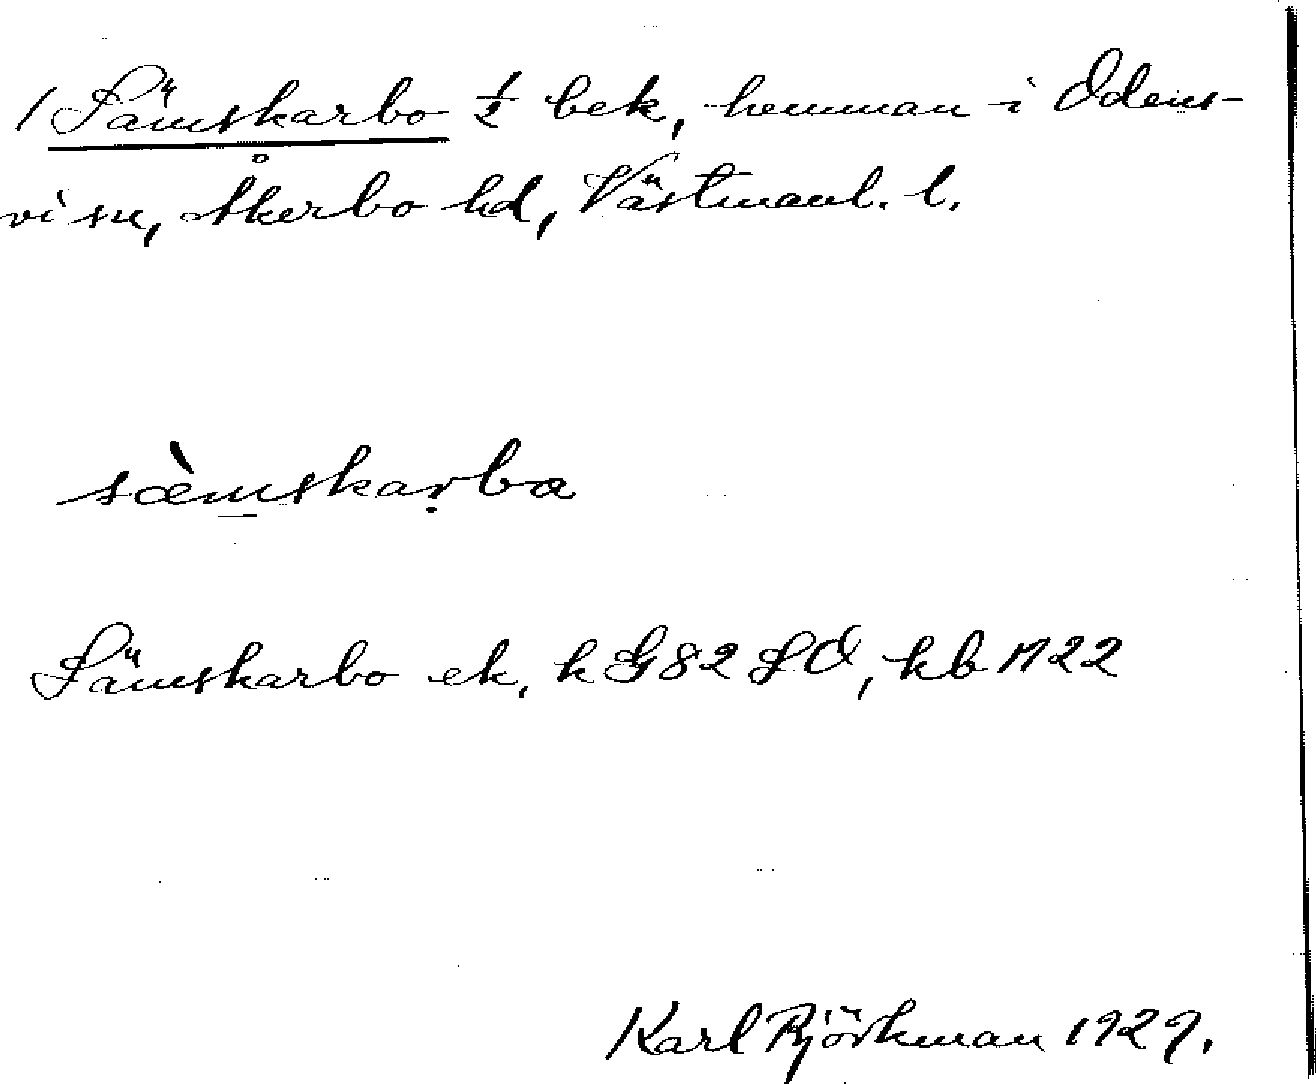 1 Sämskarbo ½ bek, hemman i Odens-
visn, Åkerbo hd, Västmanl. l.
sæ̀mskarba
Sämskarbo ek, k G82 LO, kb 1722
Karl Björkman 1929.